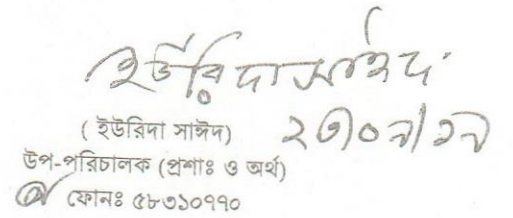 ইউরিদা সাঈদ
(ইউরিদা সাঈদ)
উপ-পরিচালক (প্রশাঃ ও অর্থ)
ফোনঃ ৫৮৩১০৭৭০